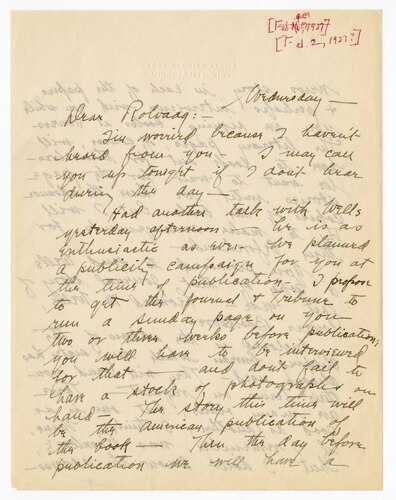 [Feb 1927]
[Feb. 2, 1927?]
Wednesday —
Dear Rolvaag: —
I'm worried because I haven't
heard from you — I may call
you up tonight if I don't hear
during the day —
Had another talk with Wells
yesterday afternoon — he is as
enthusiastic as ever — We planned
a publicity campaign for you at
the time of publication — I propose
to get the Journal & Tribune to
run a Sunday page on you
two or three weeks before publication;
you will have to be interviewed
for that — and don't fail to
have a stock of photographs on
hand — The story this time will
be the American publication of
the book — Then the day before
publication we will have a